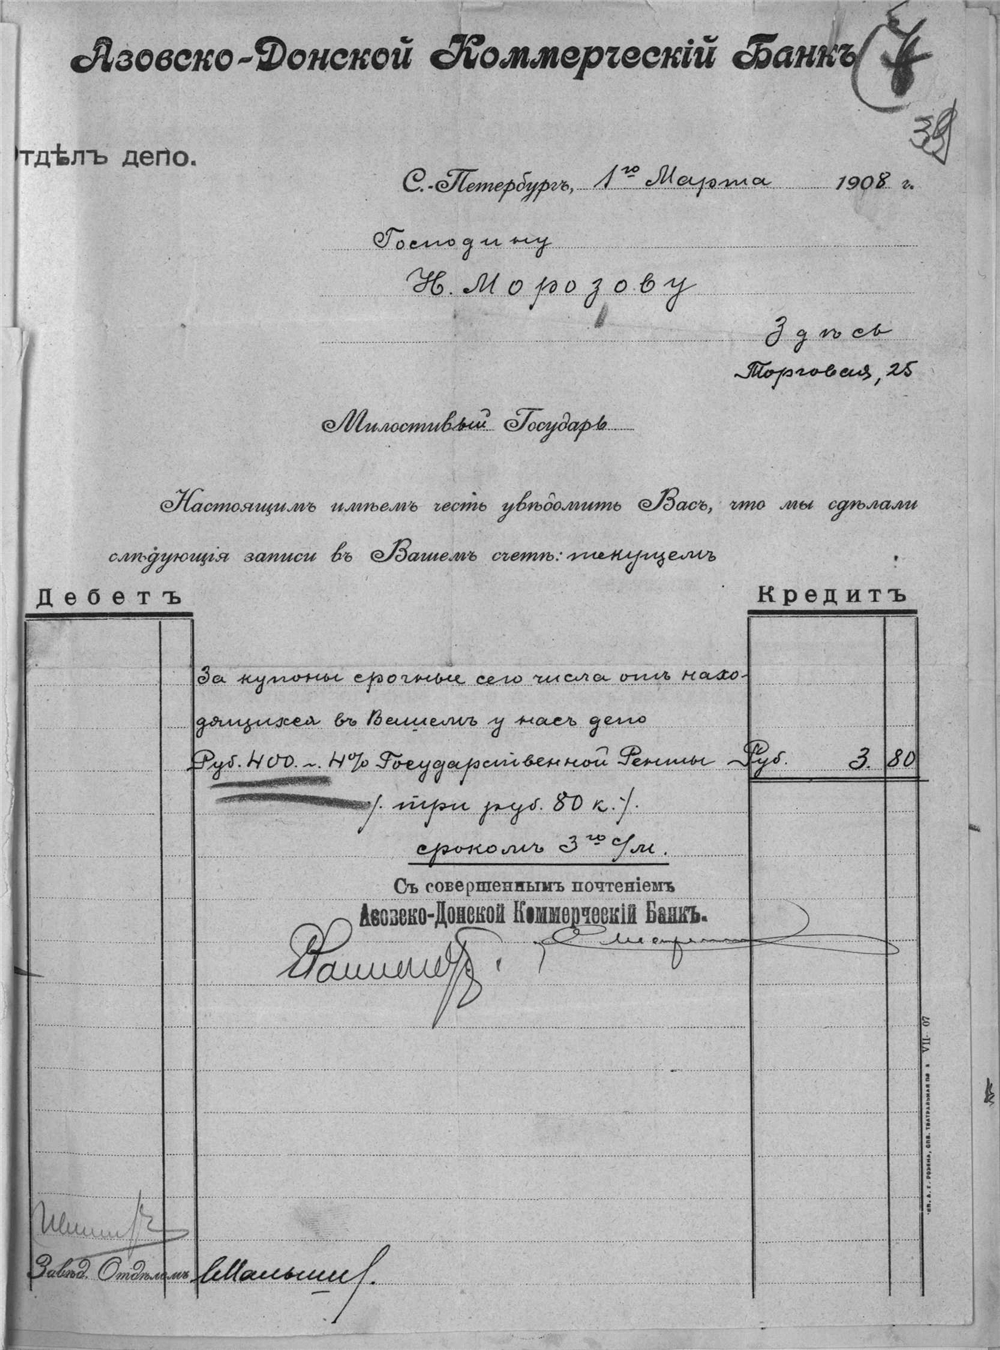 Азовско-Донской Коммерческій Банкъ
39
Отдѣлъ депо.
С.-Петербургъ, 1го Марта 1908 г.
Господину
Н. Морозову
Здѣсь
Торговая, 25
Милостивый Государь
Настоящимъ имѣемъ честь увѣдомить Васъ, что мы сдѣлали
слѣдующія записи въ Вашемъ счетѣ: текущемъ
Дебетъ Кредитъ
За купоны срочные сего числа отъ нахо-
дящихся въ Вашемъ у насъ депо
Руб. 400.~ 4% Государственной Ренты Руб. 3. 80
/. три руб. 80 к. /.
срокомъ 3го с/м.
Съ совершеннымъ почтеніемъ
Азовско-Донской Коммерческій Банкъ.
Завѣд. Отдѣломъ